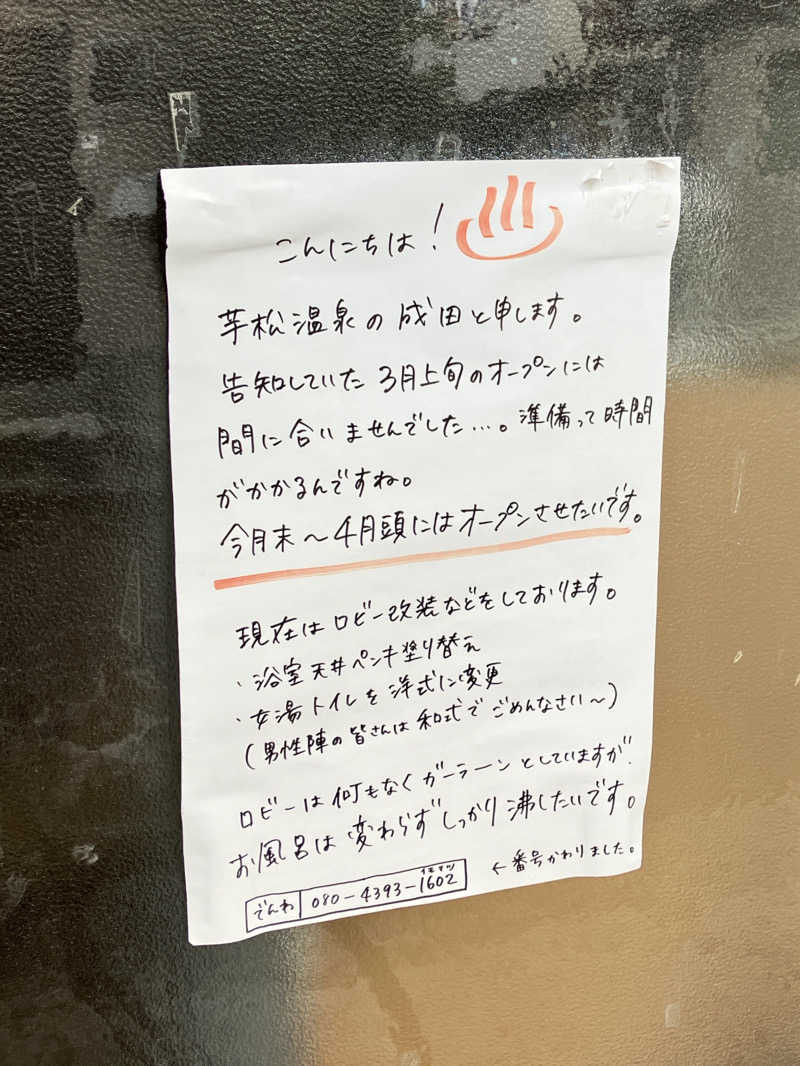 こんにちは!
芋松温泉の成田と申します。
告知していた3月上旬のオープンには
間に合いませんでした…。準備って時間
がかかるんですね。
今月末～4月頭にはオープンさせたいです。
現在はロビー改装などをしております。
・浴室天井ペンキ塗り替え
・女湯トイレを洋式に変更
(男性陣の皆さんは和式で ごめんなさい～)
ロビーは何もなくガーラーンとしていますが、
お風呂は変わらずしっかり沸したいです。
イモマツ
でんわ 080-4393-1602 ←番号かわりました。